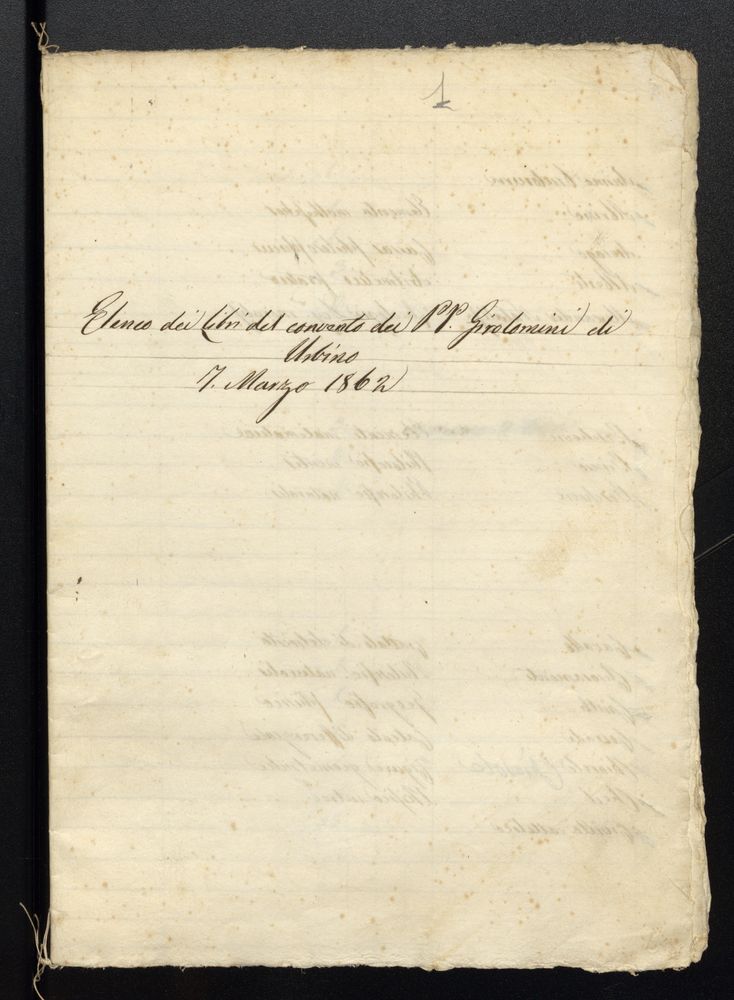 1
Elenco dei libri del convento dei PP. Girolomini di
Urbino
7. Marzo 1862